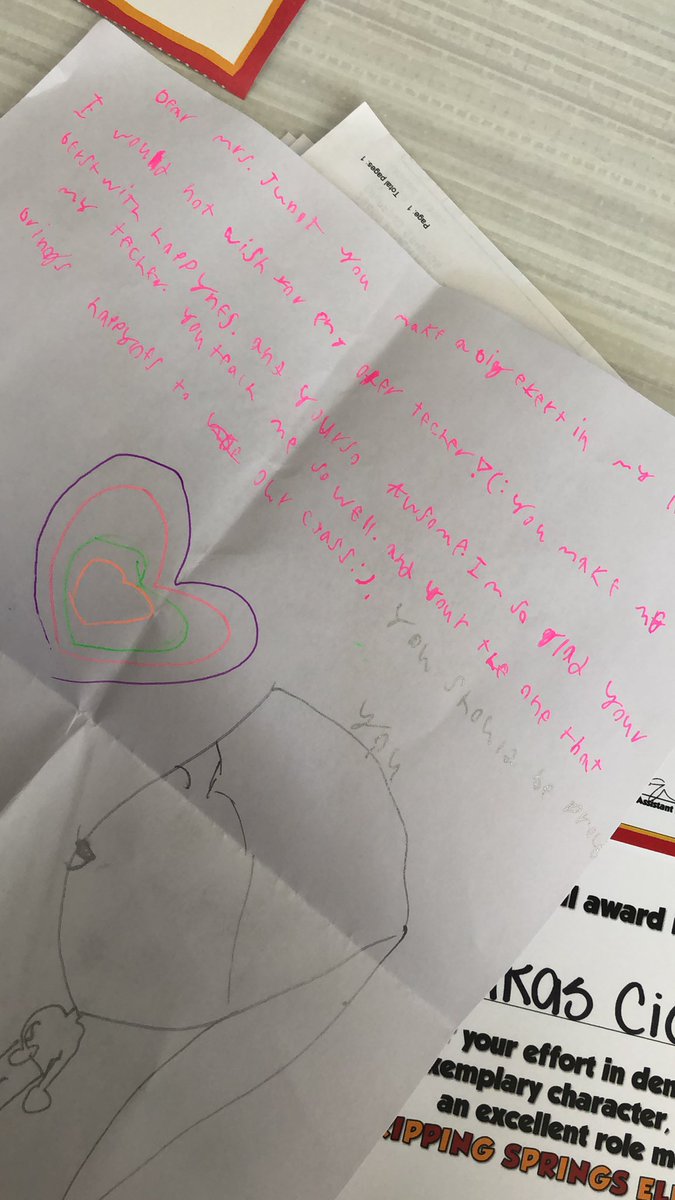 Page: 1
Total pages: 1
Dear mrs. Junot you make a big efekt in my
I would not wish for eny other techer! (: you make me
berst with happynes. and yourso Awsome. I'm so glad your
my techer. you teach me so well. and your the one that
brings happynes to our class :).
you should be
you
Assistant
award
kas Cio
your effort in dem
xemplary character,
an excellent role m
IPPING SPRINGS ELE